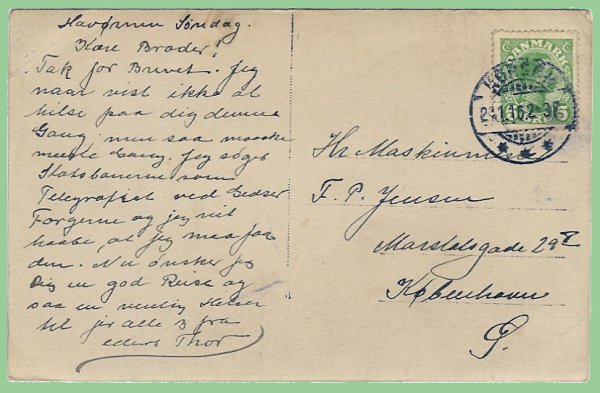 Søndag.
Kære Broder!
Tak for Brevet. Jeg
naar vist ikke at
hilse paa dig denne
Gang, men saa maaske
næste Gang. Jeg søger
Statsbanerne som
Telegrafist ved Gedser
Færgerne og jeg vil
haabe, at jeg maa faa
den. Nu ønsker jeg
Dig en god Reise og
saa en venlig Hilsen
til jer alle 3 fra
eders Thor
DANMARK
5
Hr. Maskinm
F. P. Jensen
Marstalsgade 29
København
Ø.